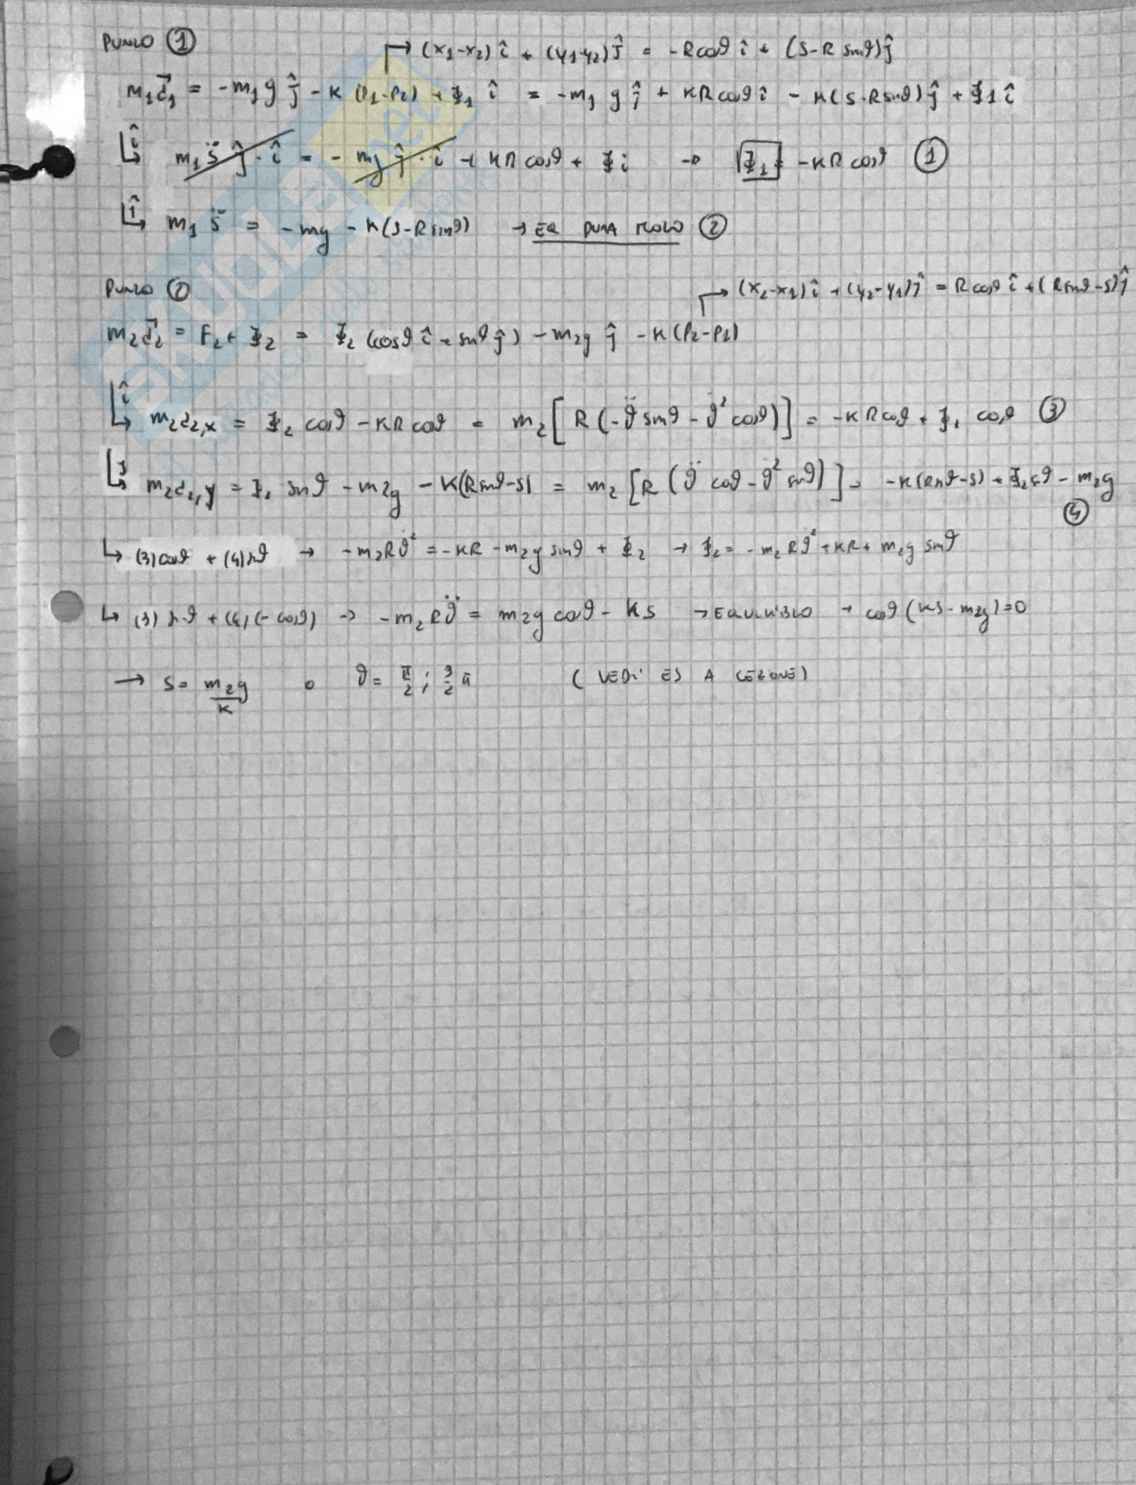 PUNTO ①
→ (x₁-x₂) î + (y₁-y₂) ĵ = -R cosϑ î + (s-R sinϑ) ĵ
m₁ a⃗₁ = -m₁ g ĵ - K (P₁-P₂) + Φ₁ î = -m₁ g ĵ + KR cosϑ î - K(s-R sinϑ) ĵ + Φ₁ î
î ↳ m₁ s̈ ĵ · î = - mg ĵ · î + KR cosϑ + Φ₁ → Φ₁ = -KR cosϑ ①
ĵ ↳ m₁ s̈ = -mg - K(s-R sinϑ) → EQ PURA MOTO ②
PUNTO ②
→ (x₂-x₁) î + (y₂-y₁) ĵ = R cosϑ î + (R sinϑ-s) ĵ
m₂ a⃗₂ = F₂ + Φ₂ = Φ₂ (cosϑ î + sinϑ ĵ) - m₂g ĵ - K (P₂-P₁)
î ↳ m₂a₂,x = Φ₂ cosϑ - KR cosϑ = m₂ [R (-ϑ̈ sinϑ - ϑ̇² cosϑ)] = -KR cosϑ + Φ₂ cosϑ ③
ĵ ↳ m₂a₂,y = Φ₂ sinϑ - m₂g - K(R sinϑ-s) = m₂ [R (ϑ̈ cosϑ - ϑ̇² sinϑ)] = -K(R sinϑ-s) + Φ₂ sϑ - m₂g
④
↳ (3) cosϑ + (4) sϑ → -m₂Rϑ̇² = -KR - m₂g sinϑ + Φ₂ → Φ₂ = -m₂Rϑ̇² + KR + m₂g sinϑ
↳ (3) sϑ + (4) (-cosϑ) → -m₂Rϑ̈ = m₂g cosϑ - Ks → EQUILIBRIO → cosϑ (Ks-m₂g) = 0
→ s = m₂g/K o ϑ = π/2 ; 3/2 π (VEDI ES A LEZIONE)